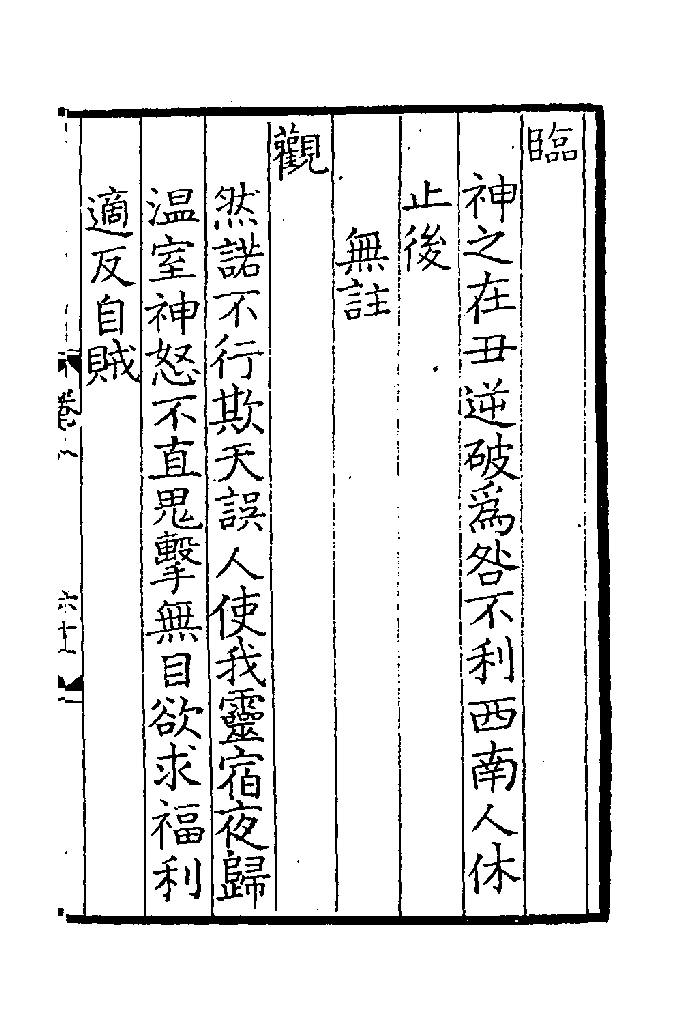 臨
神之在丑逆破為咎不利西南人休
止後
無註
觀
然諾不行欺天誤人使我靈宿夜歸
温室神怒不直鬼擊無目欲求福利
適反自賊
卷
六十一